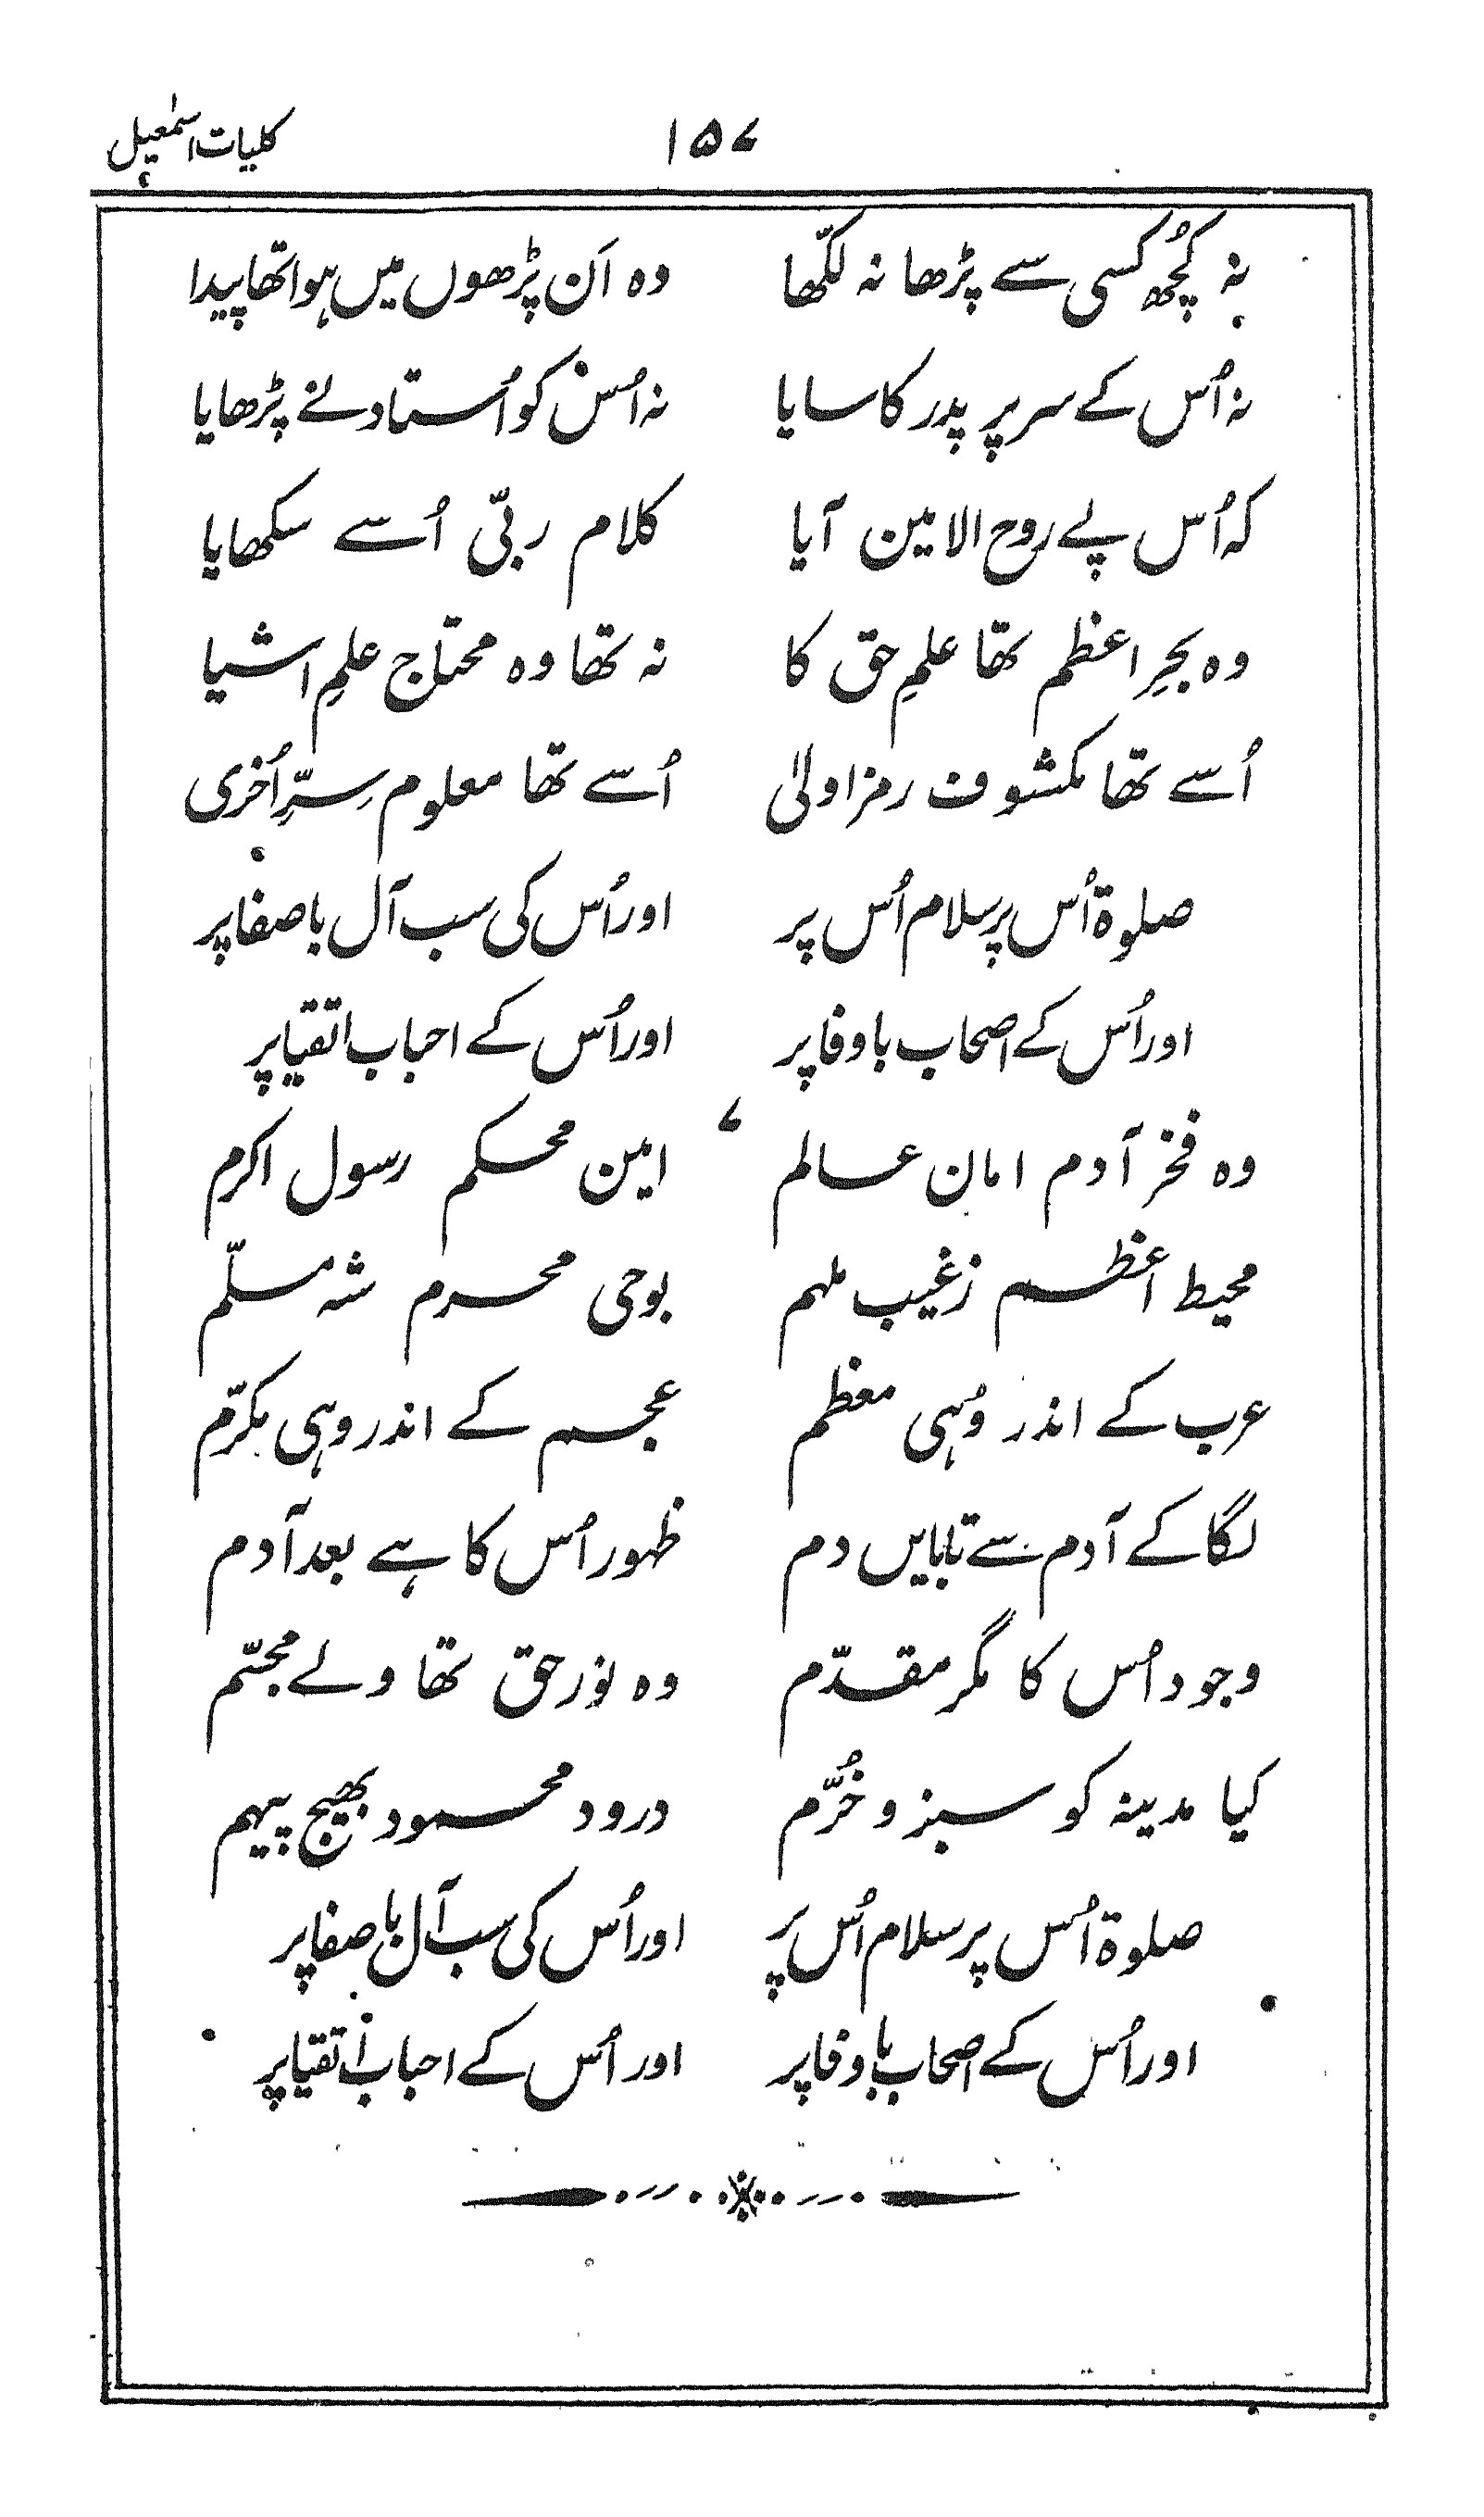 ۱۵۷ کلیات اسمٰعیل
نہ کچُھ کسی سے پڑھا نہ لکّھا وہ اَن پڑھوں میں ہوا تھا پیدا
نہ اُس کے سر پر پدر کا سایا نہ اُس کو اُستاد نے پڑھایا
کہ اُس پے روح الامین آیا کلام ربّی اُسے سکھایا
وہ بحرِ اعظم تھا علمِ حق کا نہ تھا وہ محتاج علمِ اشیا
اُسے تھا مکشوف رمز اولیٰ اُسے تھا معلوم سِرِّ اُخری
صلوۃ اُس پر سلام اُس پر اور اُس کی سب آل با صفا پر
اور اُس کے اصحاب با وفا پر اور اُس کے احباب اتقیا پر
۷
وہ فخر آدم امان عالم امین محکم رسول اکرم
محیط اعظم ز غیب ملہم بوحی محرم شہ مسلّم
عرب کے اندر وُہی معظم عجم کے اندر وہی مکرّم
لگا کے آدم سے تا بایں دم ظہور اُس کا ہے بعد آدم
وجود اُس کا مگر مقدّم وہ نور حق تھا ولے مجسّم
کیا مدینہ کو سبز و خُرّم درود محمود بھیج پیہم
صلوۃ اُس پر سلام اُس پر اور اُس کی سب آل با صفا پر
اور اُس کے اصحاب با وفا پر اور اُس کے احباب اتقیا پر